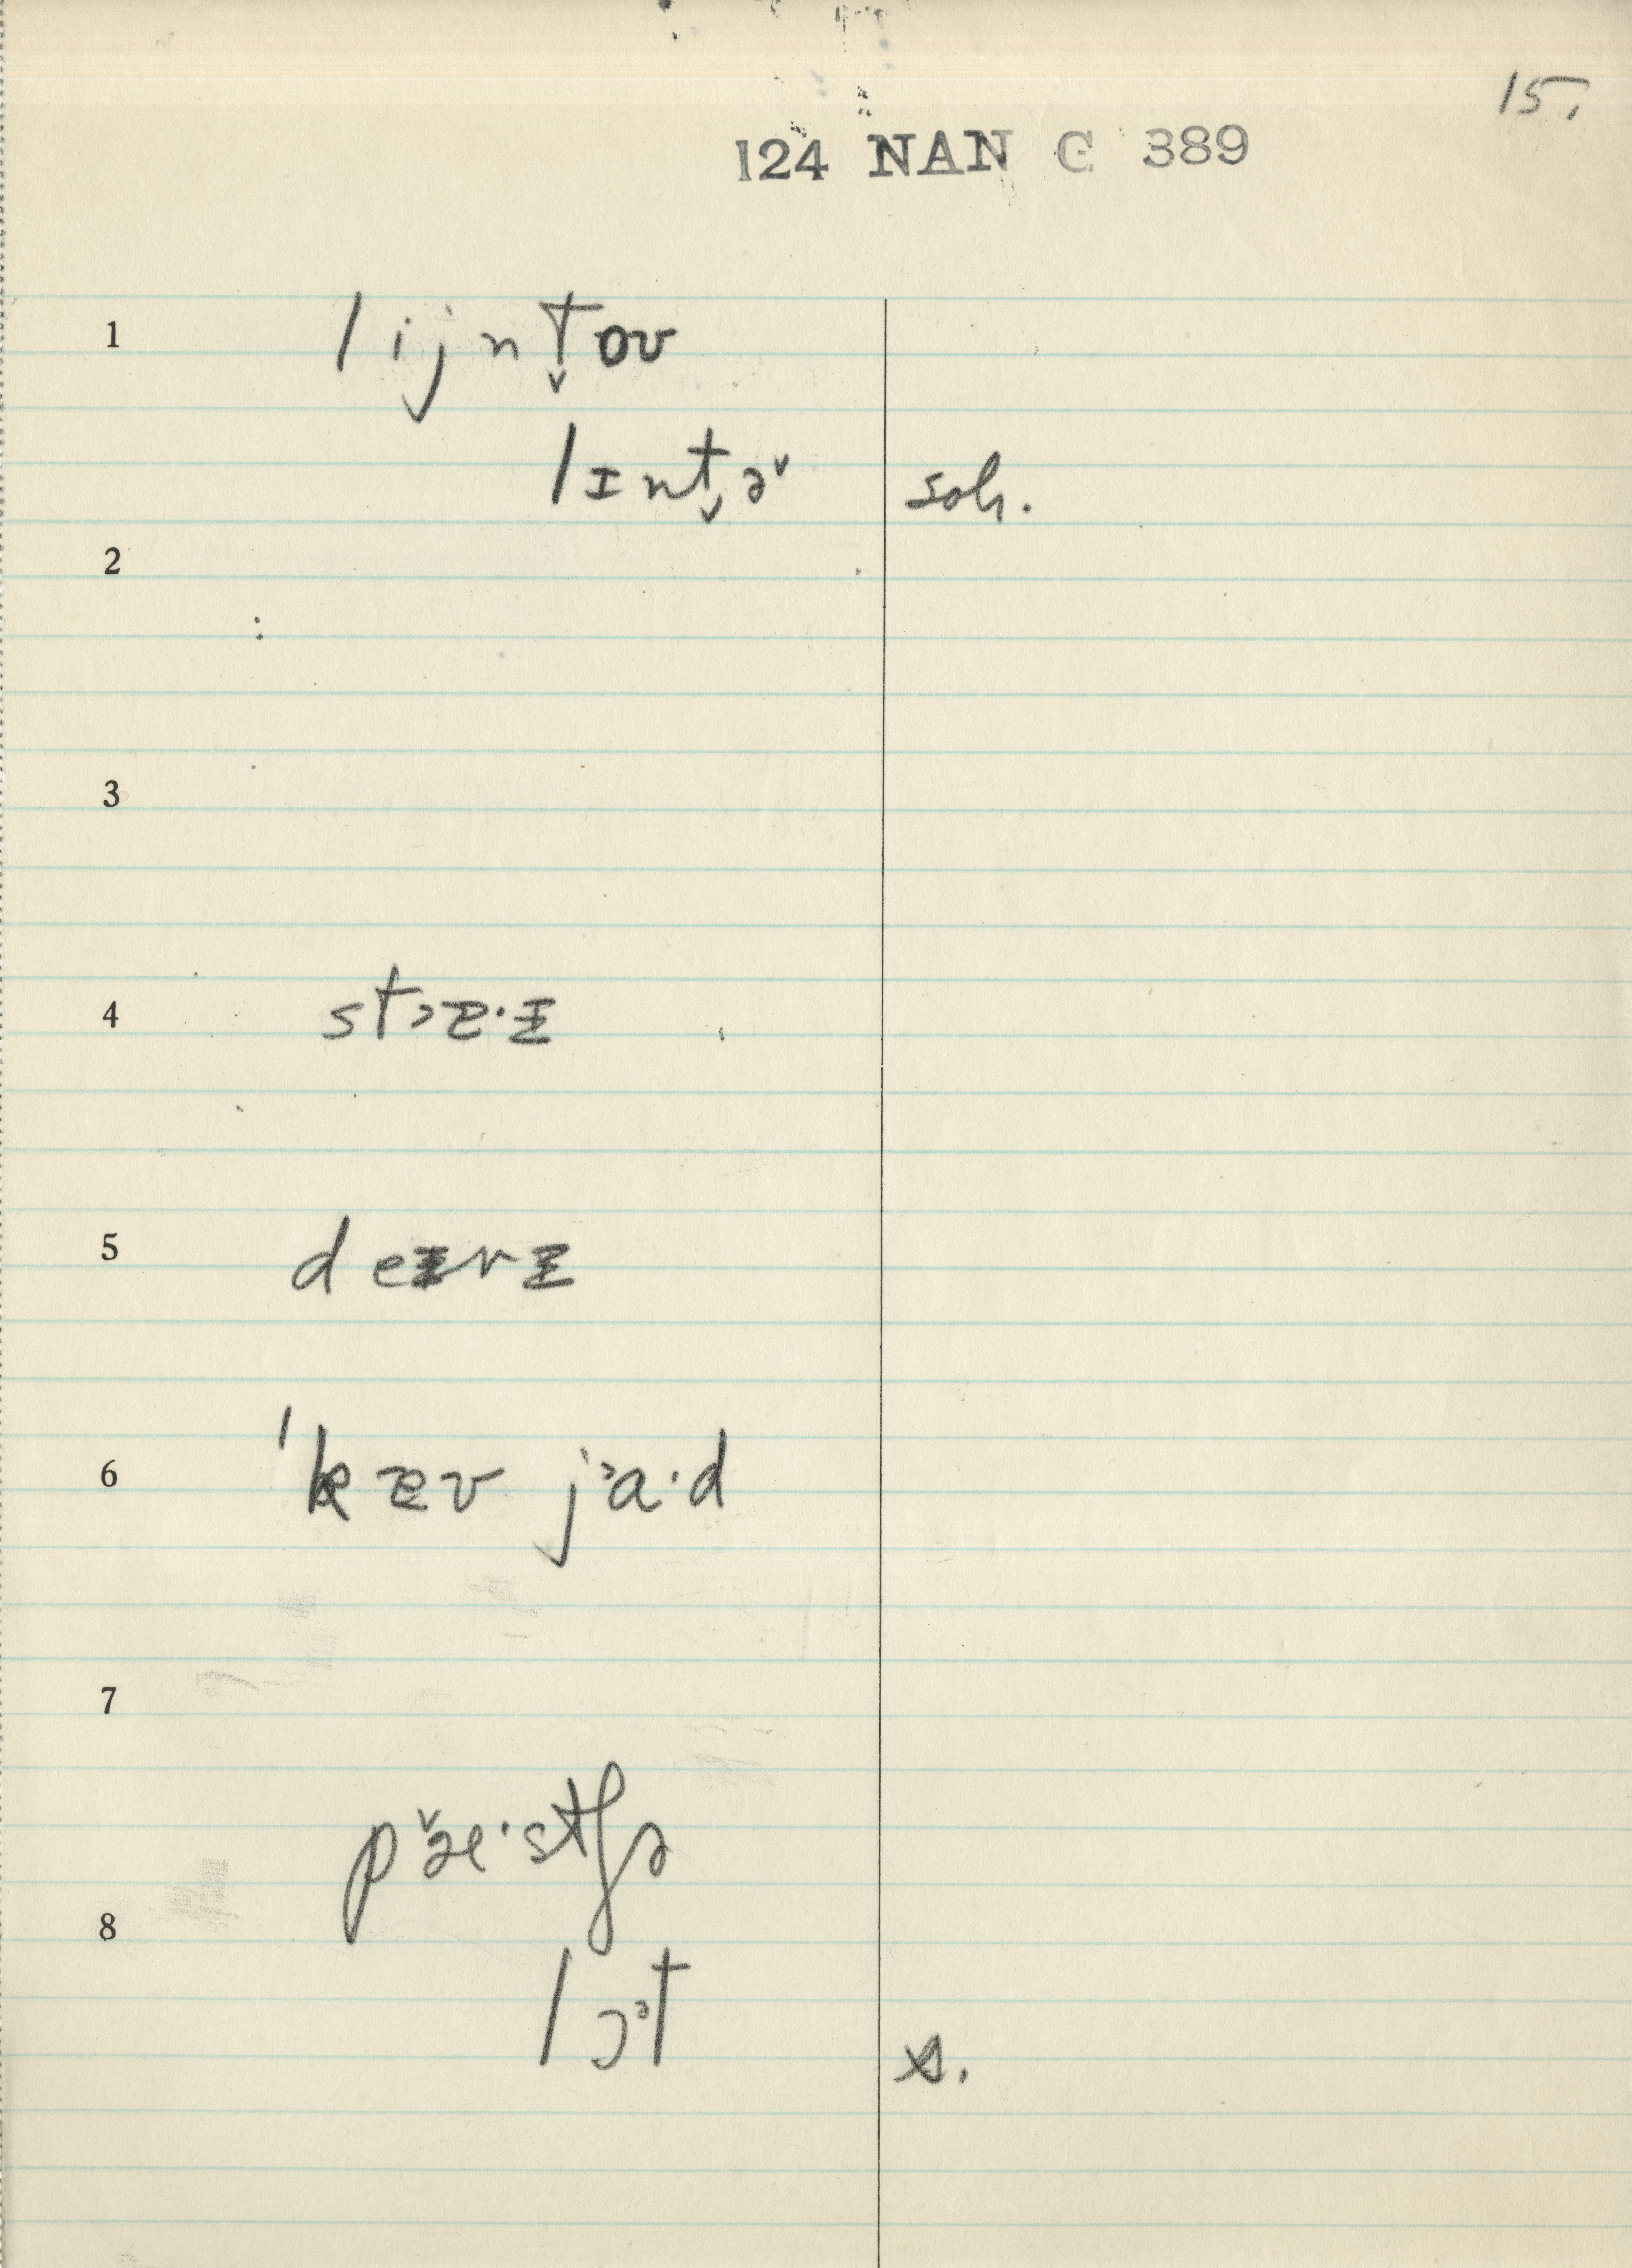 15.
124 NAN C 389
1 lijnt̬oʊ
lɪnt̬əˇ soh.
2
3
4 stɔz·ɪ
5 deɪrɪ
6 ˈkæʊ jᵊa·d
7
pæ·stʃə
8
lɔᵊt s.